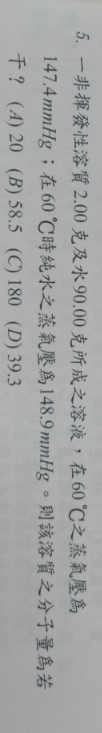 5. 一非揮發性溶質2.00克及水90.00克所成之溶液，在60℃之蒸氣壓為
147.4mmHg；在60℃時純水之蒸氣壓為148.9mmHg。則該溶質之分子量為若
干？ (A) 20 (B) 58.5 (C) 180 (D) 39.3